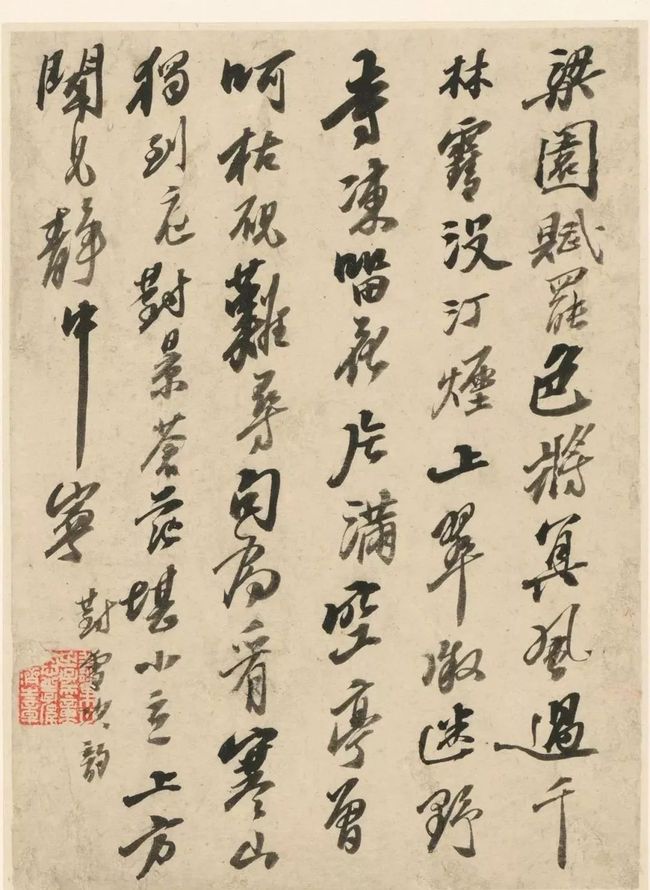 梁園賦罷色將冥風過千
林雪沒汀煙上翠微迷野
寺凍留花片滿空亭曾
呵枯硯難尋句為看寒山
獨到對景蒼茫堪小立上方
聞見靜中寧
對雪次韻